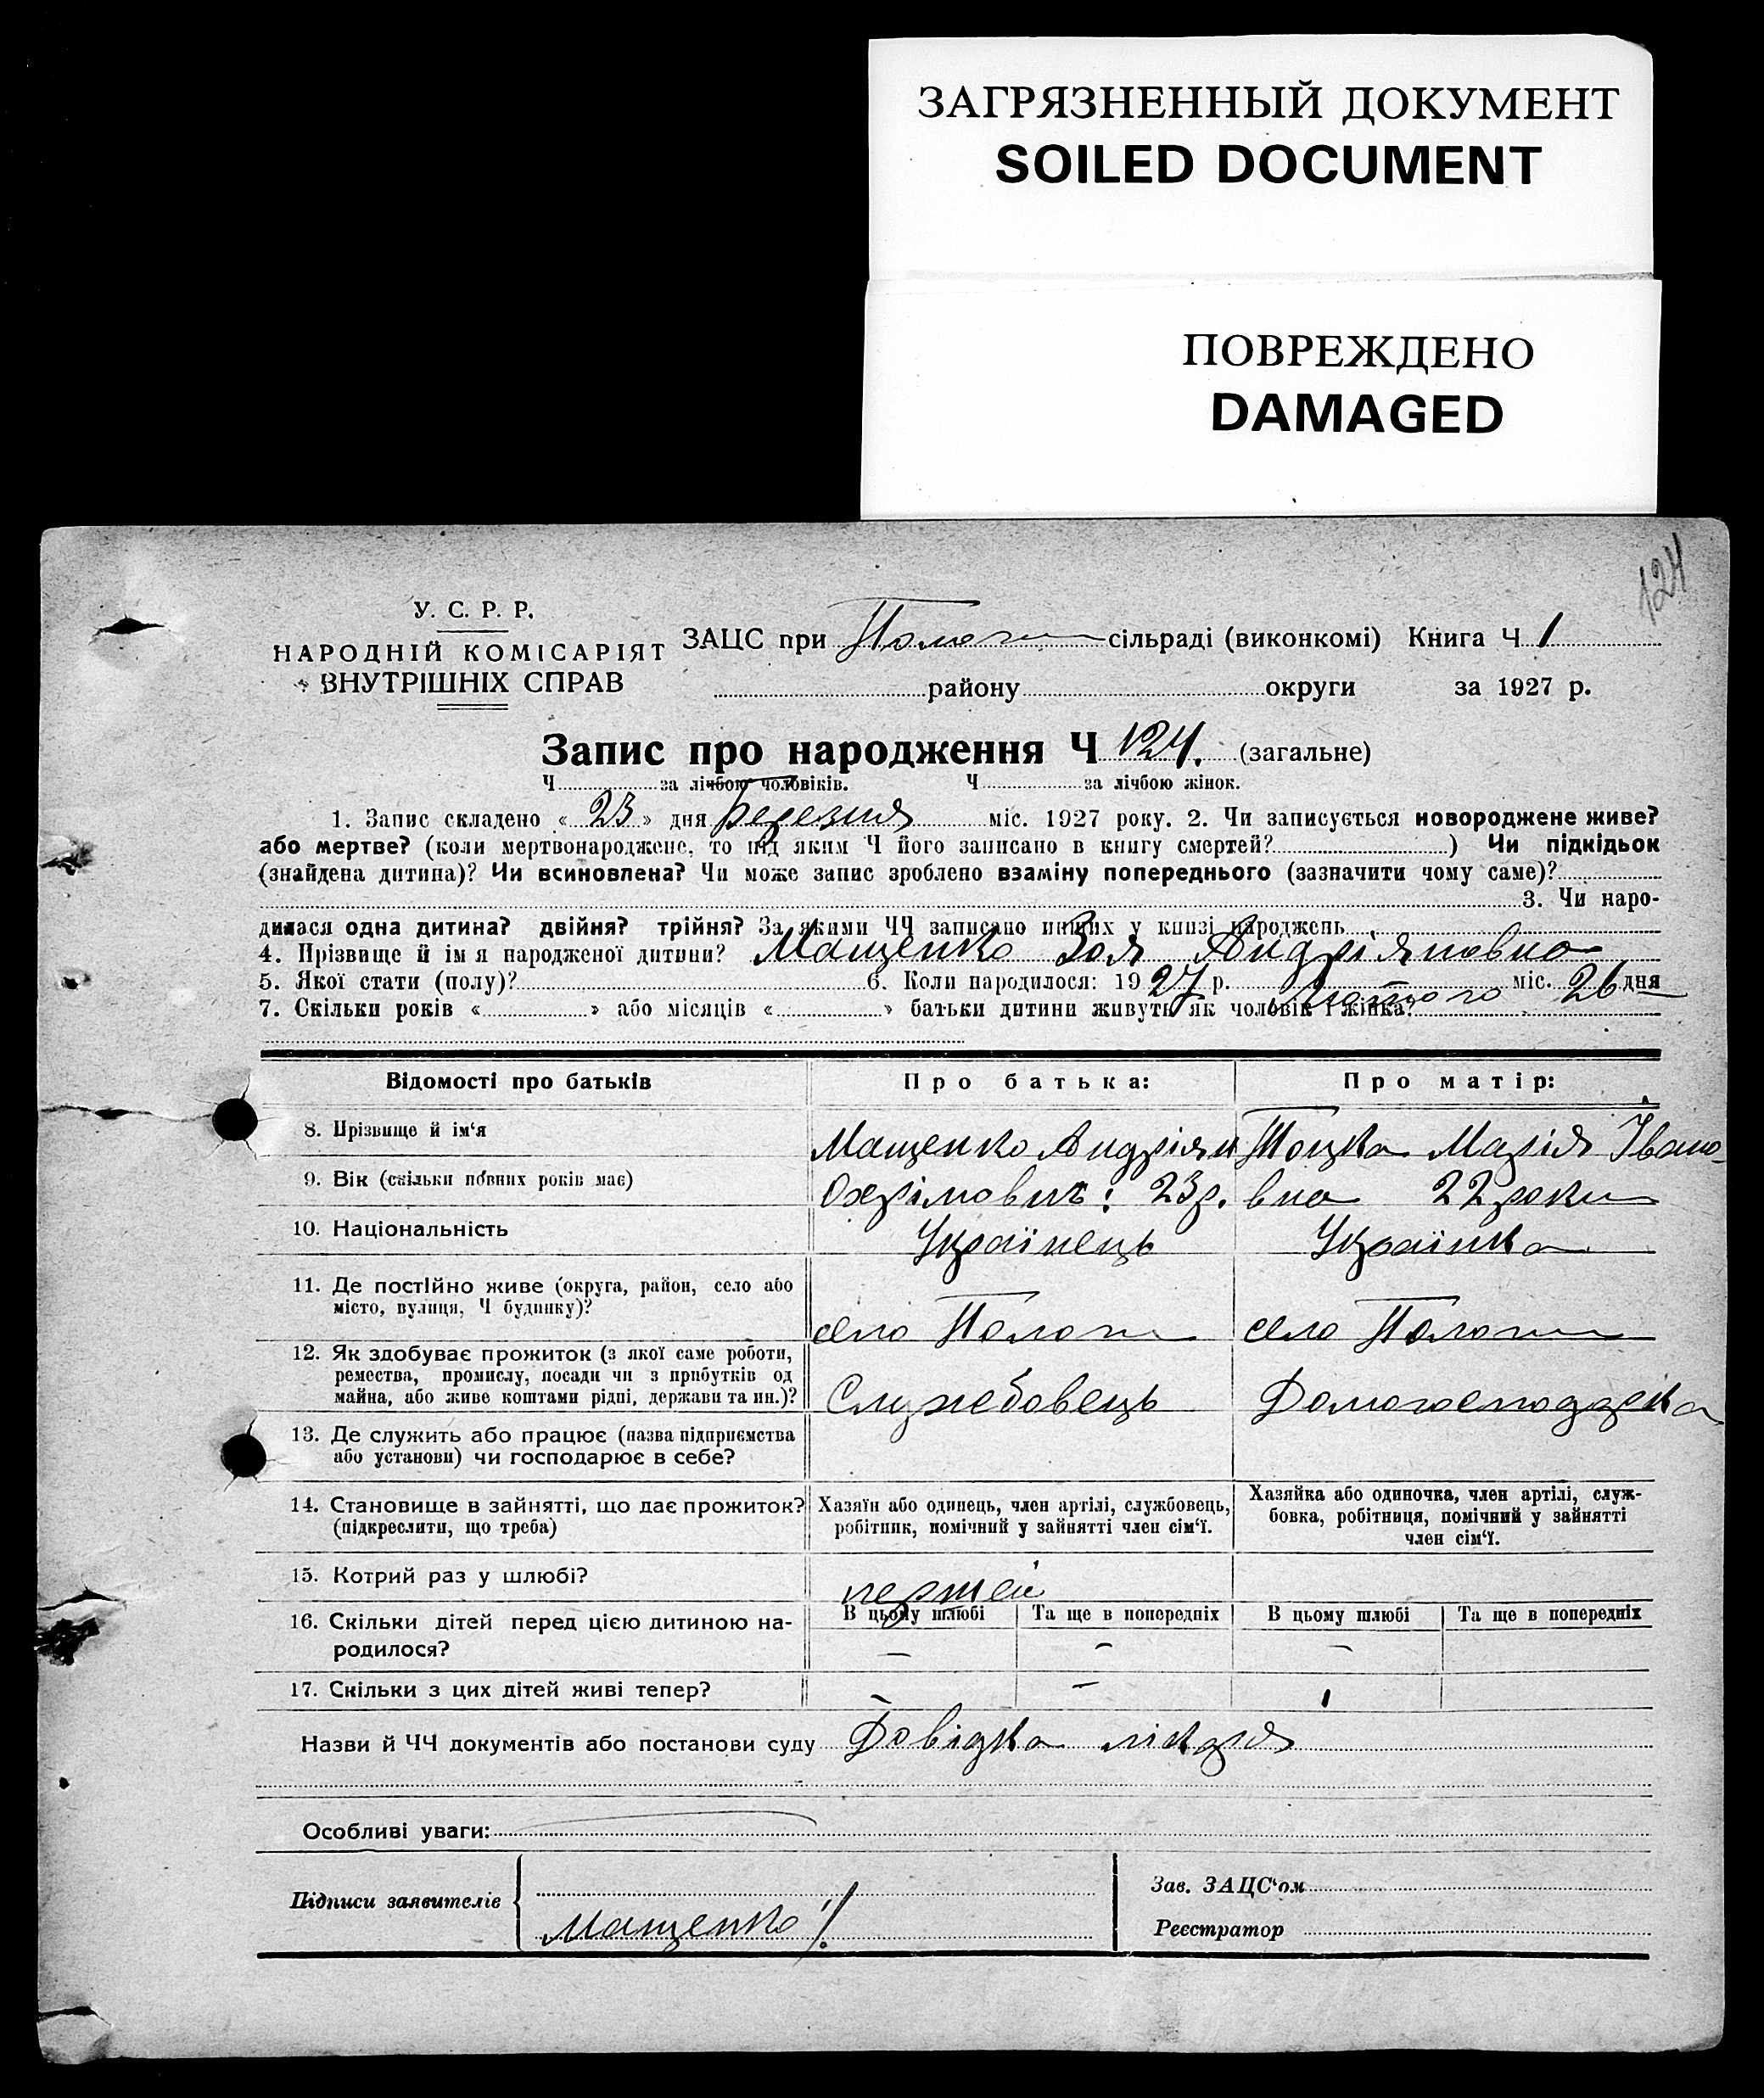 ЗАГРЯЗНЕННЫЙ ДОКУМЕНТ
SOILED DOCUMENT
ПОВРЕЖДЕНО
DAMAGED
124
У. С. Р. Р.
НАРОДНІЙ КОМІСАРІЯТ
ВНУТРІШНІХ СПРАВ
ЗАЦС при Пологи сільраді (виконкомі) Книга Ч 1
району округи за 1927 р.
Запис про народження Ч 124. (загальне)
Ч за лічбою чоловіків. Ч за лічбою жінок.
1. Запис складено «23» дня Березня міс. 1927 року. 2. Чи записується новороджене живе?
або мертве? (коли мертвонароджене, то під яким Ч його записано в книгу смертей? ) Чи підкідьок
(знайдена дитина)? Чи всиновлена? Чи може запис зроблено взаміну попереднього (зазначити чому саме)?
3. Чи наро-
дилася одна дитина? двійня? трійня? За якими ЧЧ записано инших у книзі народжень
4. Прізвище й імя народженої дитини? Мащенко Зоя Андріяновна
5. Якої стати (полу)? 6. Коли народилося: 1927 р. Лютого міс. 26 дня
7. Скільки років « » або місяців « » батьки дитини живуть як чоловік і жінка?
Відомості про батьків Про батька: Про матір:
8. Прізвище й ім'я Мащенко Андріян Тоцка Марія Івано-
9. Вік (скільки повних років має) Охрімович: 23р. вна 22 роки
10. Національність Українець Українка
11. Де постійно живе (округа, район, село або
місто, вулиця, Ч будинку)? село Пологи село Пологи
12. Як здобуває прожиток (з якої саме роботи,
ремества, промислу, посади чи з прибутків од
майна, або живе коштами рідні, держави та ин.)? Службовець Домогосподарка
13. Де служить або працює (назва підприємства
або установи) чи господарює в себе?
14. Становище в зайнятті, що дає прожиток?
(підкреслити, що треба)
Хазяїн або одинець, член артілі, службовець,
робітник, помічний у зайнятті член сім'ї.
Хазяйка або одиночка, член артілі, служ-
бовка, робітниця, помічний у зайнятті
член сім'ї.
15. Котрий раз у шлюбі? перший
16. Скільки дітей перед цією дитиною на-
родилося?
В цьому шлюбі Та ще в попередніх В цьому шлюбі Та ще в попередніх
– – –
17. Скільки з цих дітей живі тепер? – –
Назви й ЧЧ документів або постанови суду Довідка лікаря
Особливі уваги:
Підписи заявителів
Мащенко
Зав. ЗАЦС'ом
Реєстратор